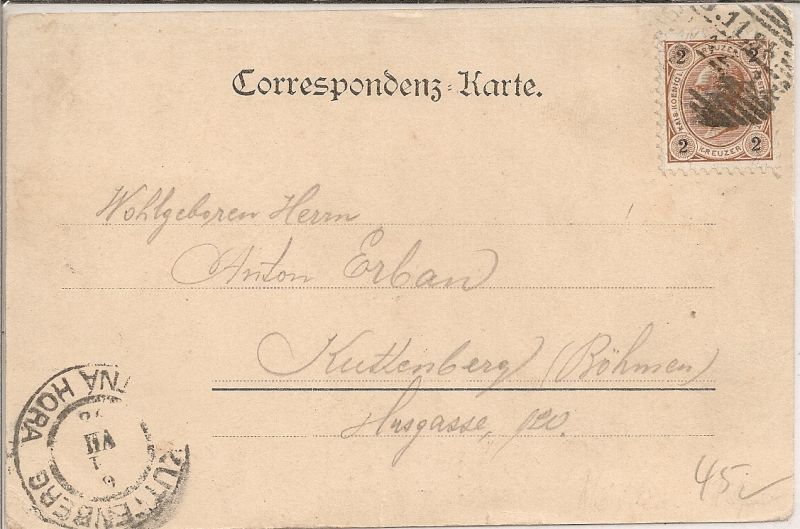 Correspondenz-Karte.
2 KREUZER 2
KAIS. KOENIGL.
2 KREUZER 2
Wohlgeboren Herrn
Anton Erban
Kuttenberg (Böhmen)
Husgasse, 120.
KUTTENBERG
HORA
VII
45